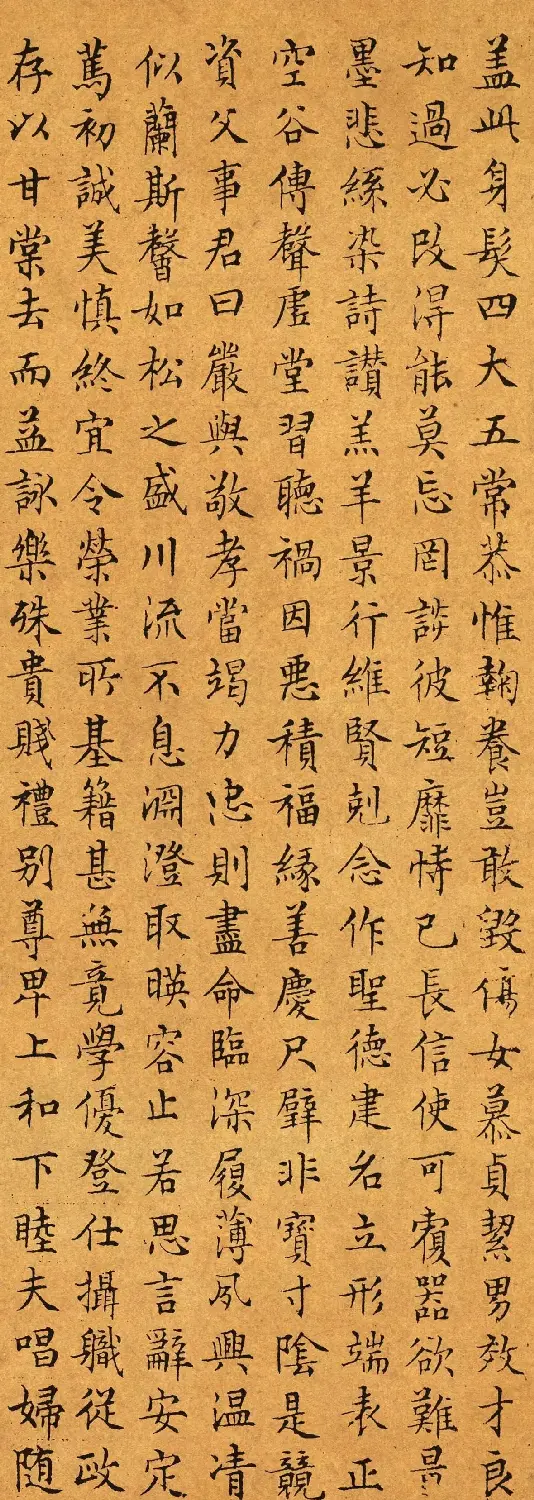 盖此身髮四大五常恭惟鞠養豈敢毀傷女慕貞絜男效才良
知過必改得能莫忘罔談彼短靡恃己長信使可覆器欲難量
墨悲絲染詩讃羔羊景行維賢剋念作聖德建名立形端表正
空谷傳聲虛堂習聽禍因惡積福緣善慶尺璧非寶寸陰是競
資父事君曰嚴與敬孝當竭力忠則盡命臨深履薄夙興溫凊
似蘭斯馨如松之盛川流不息淵澄取暎容止若思言辭安定
篤初誠美慎終宜令榮業所基籍甚無竟學優登仕攝職從政
存以甘棠去而益詠樂殊貴賤禮別尊卑上和下睦夫唱婦随